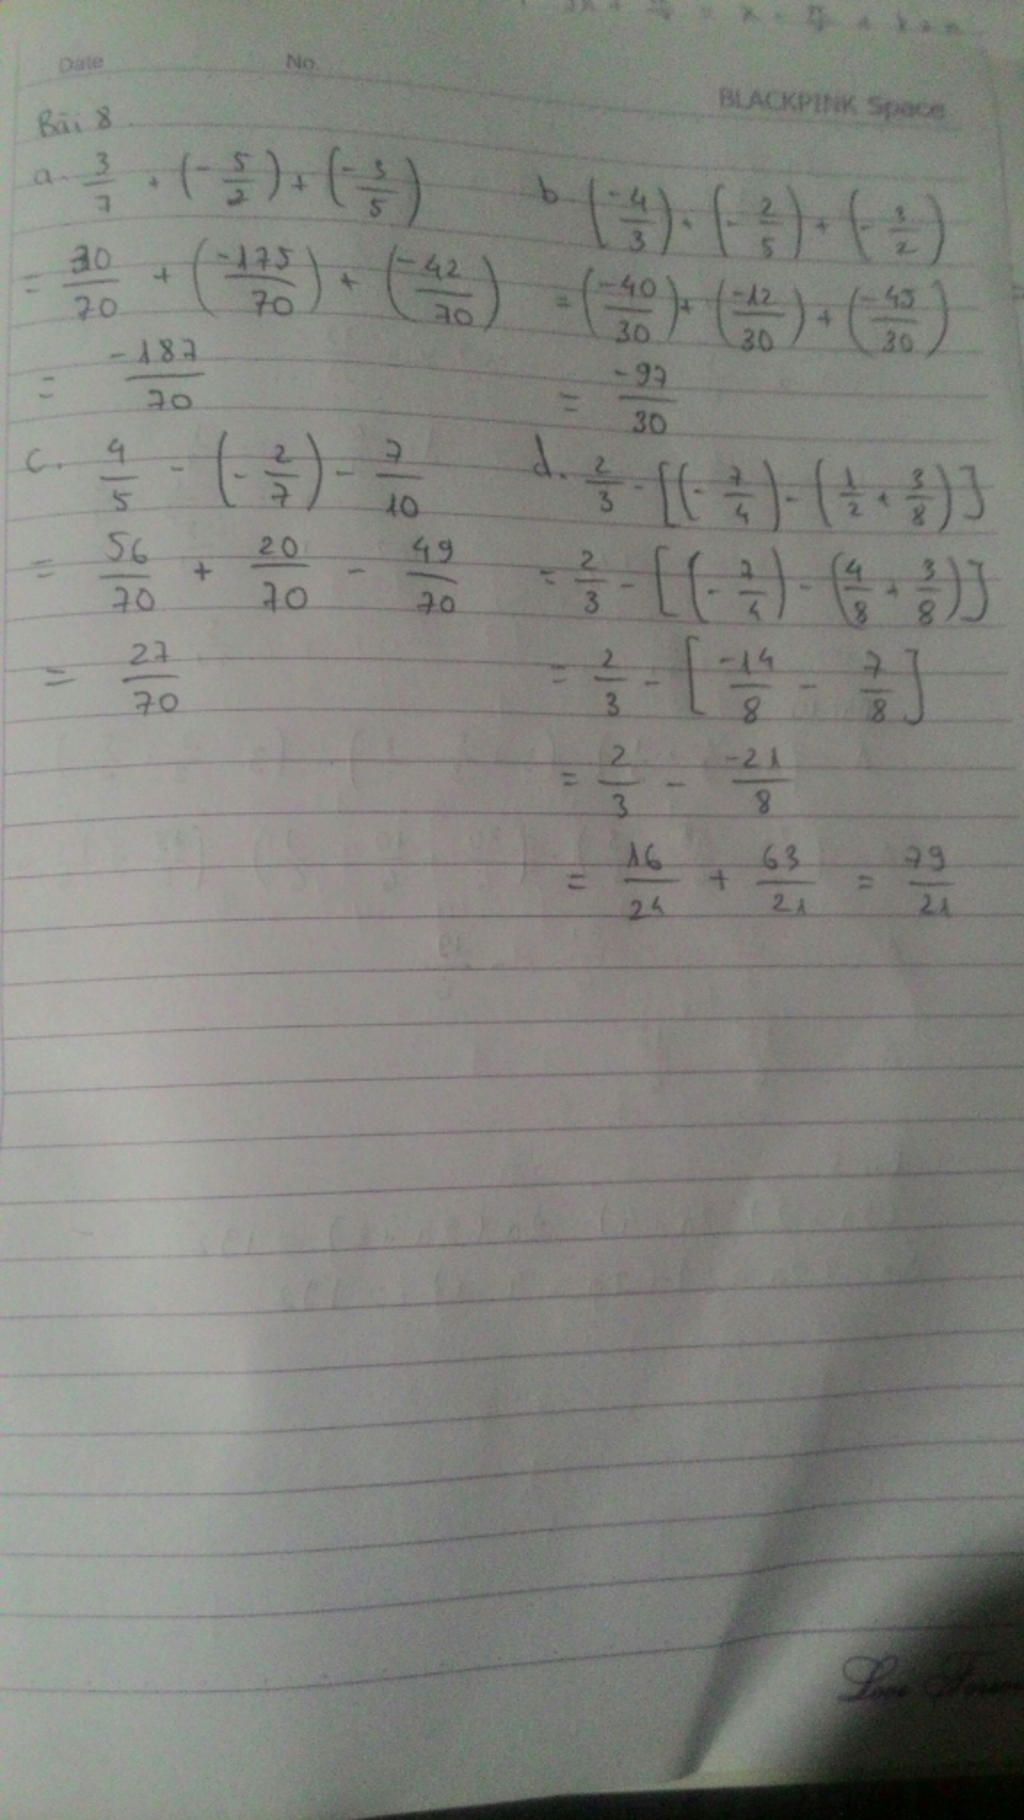 Date No.
BLACKPINK Space
Bài 8
a. 3/7 + (-5/2) + (-3/5)
= 30/70 + (-175/70) + (-42/70)
= -187/70
b (-4/3) + (-2/5) + (-3/2)
= (-40/30) + (-12/30) + (-45/30)
= -97/30
c. 4/5 - (-2/7) - 7/10
= 56/70 + 20/70 - 49/70
= 27/70
d. 2/3 - [(-7/4) - (1/2 + 3/8)]
= 2/3 - [(-7/4) - (4/8 + 3/8)]
= 2/3 - [-14/8 - 7/8]
= 2/3 - -21/8
= 16/24 + 63/21 = 79/21
Love